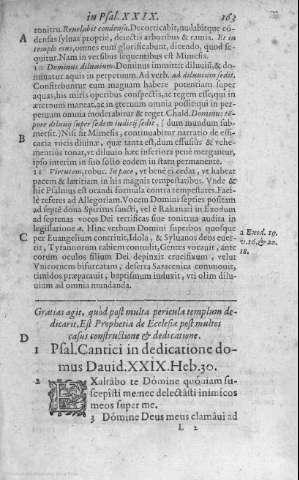 in Psal. XXIX. 163
A tonitru. Reuelabit condensa. Decorticabit, nudabitque
densas syluas propriè, deiectis arboribus & ramis. Et in
templo eius, omnes eum glorificabunt, dicendo, quod se-
quitur. Nam in versibus sequentibus est Mimesis.
10 Dominus diluuium. Dominus immittet diluuiū, & do-
minatur aquis in perpetuum. Ad verb. ad diluuium sedit.
Constituuntur eum magnam habere potentiam super
aquas, his miris operibus conspectis, ac regem esse, qui in
æternum maneat, ac in æternum omnia possit, qui in per-
petuum omnia moderabitur & reget. Chald. Dominus
pore diluuij super sedem iudicij sedit, dum mundum sub-
B mersit. Nisi sit Mimesis, continuabitur narratio de effi-
cacia vocis diuinæ, quæ tanta est, dum effusius & vehe-
mentius tonat, vt diluuio hæc inferiora penè mergantur,
ipso interim in suo solio eodem in statu permanente.
11 Virtutem, robur. In pace, vt benè ei cedat, vt habeat
pacem & lætitiam in his magnis tempestatibus. Vnde &
hic Psalmus est orandi formula contra tempestates. Faci-
lè referes ad Allegoriam. Vocem Domini septies positam
ad septē dona Spiritus sancti, vel è Rakanati in Exodum
ad septenas voces Dei terrificas siue tonitrua audita in
legislatione a. Hinc verbum Domini superbos quosque
per Euangelium contriuit, Idola, & Syluanos deos euer-
C tit, Tyrannorum rabiem contudit, Gentes vocauit, ante
eorum oculos filium Dei depinxit crucifixum, velut
Vnicornem bifurcatam, deserta Saracenica conuouit,
timidos præparauit, baptismum induxit, vti olim diluu-
uium ad omnia mundanda.
a Exod. 19.
v. 16. & 20.
18.
Gratias agit, quòd post multa pericula templum de-
dicarit. Est Prophetia de Ecclesiæ post multos
casus constructione & dedicatione.
D
1 Psal. Cantici in dedicatione do-
mus Dauid. XXIX. Heb. 30.
2 EXaltábo te Dómine quóniam su-
scepísti me: nec delectásti inimícos
meos super me.
3 Dómine Deus meus clamáui ad
L 2